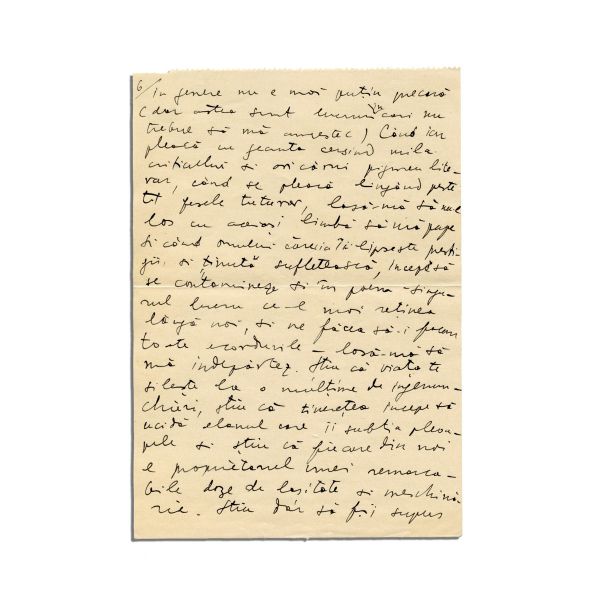 6/ In genere nu e mai puțin precară
(dar astea sunt lucruri în cari nu
trebue să mă amestec) Când iau
pleacă cu geanta cersind mila
criticului si oricărui pigmeu lite-
rar, când se pleacă lingând peste
tot fesele tuturor, lasă-mă să nu
las cu aceiasi limbă să mă pupe
si când omului căreia îi lipseste presti-
giu si ținută sufletească, începe să
se contamineze si în poema - singu-
rul lucru ce-l mai reținea
lângă noi, si ne făcea să-i facem
toate acordurile - lasă-mă să
mă îndepărtez. Stiu că viața te
sileste la o mulțime de ingenun-
chieri, stiu că tinerețea incepe să
ucidă elanul care îi subția pleoa-
pele si stiu că fiecare din noi
e proprietarul unei remarca-
bile doze de lasitate si meschină-
rie. Stiu dar să fii supus